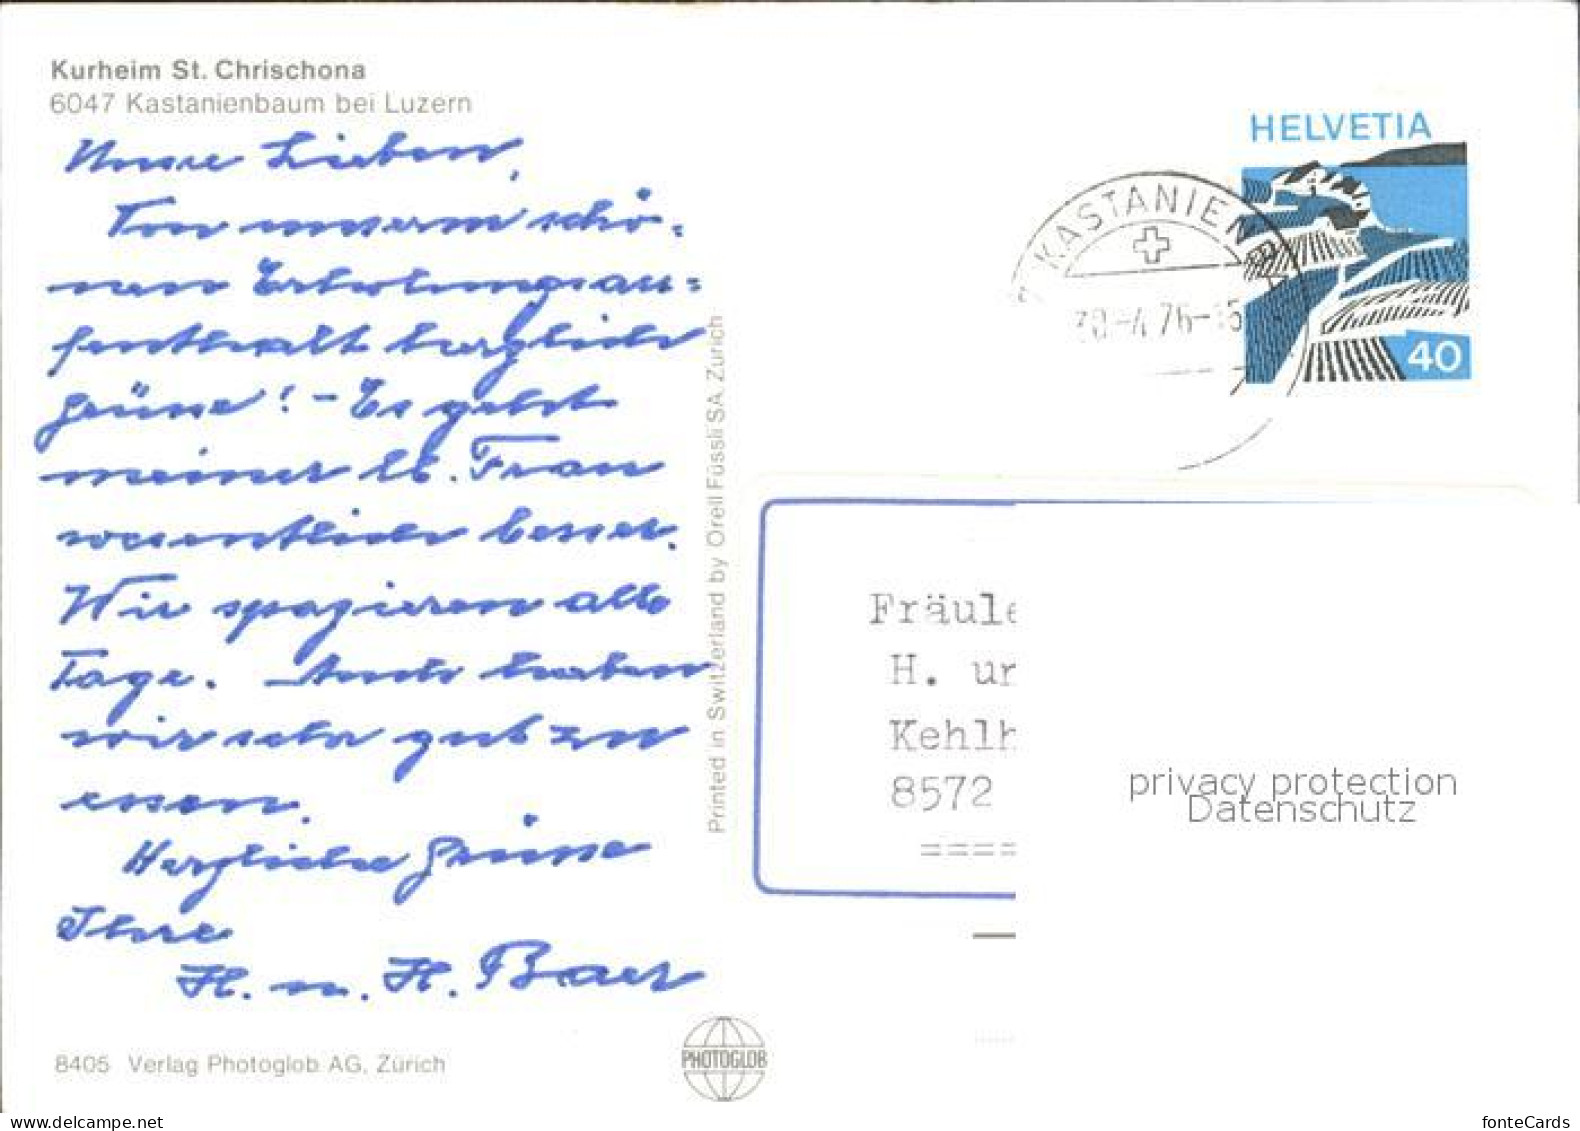 Kurheim St. Chrischona
6047 Kastanienbaum bei Luzern
Unsre Lieben,
Von unserm schö-
nen Erholungsau=
fenthalt herzliche
Grüsse! - Es geht
meiner lb. Frau
wesentlich besser.
Wir spazieren alle
Tage. Auch haben
wir sehr gut zu
essen.
Herzliche Grüsse
Ihre
H. u. H. Baer
8405 Verlag Photoglob AG, Zürich
Printed in Switzerland by Orell Füssli SA, Zürich
PHOTOGLOB
HELVETIA
40
KASTANIENB
30.-4.76-15
Fräule
H. un
Kehlh
8572
====
privacy protection
Datenschutz
www.delcampe.net
fonteCards